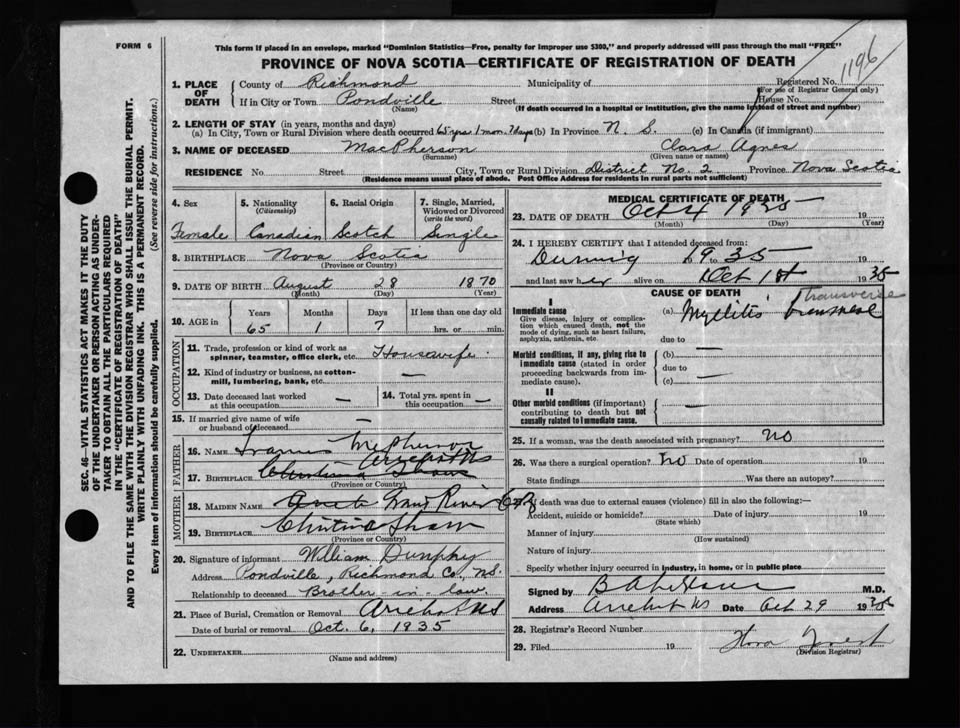 FORM 6
This form if placed in an envelope, marked "Dominion Statistics—Free, penalty for improper use $300," and properly addressed will pass through the mail "FREE"
PROVINCE OF NOVA SCOTIA—CERTIFICATE OF REGISTRATION OF DEATH
1. PLACE OF DEATH
County of Richmond Municipality of
Registered No. 1196
(For use of Registrar General only)
If in City or Town Pondville Street House No.
(Name) (If death occurred in a hospital or institution, give the name instead of street and number)
2. LENGTH OF STAY (in years, months and days)
(a) In City, Town or Rural Division where death occurred 65 yrs. 1 mon. 7 days (b) In Province N. S. (c) In Canada (if immigrant)
3. NAME OF DECEASED MacPherson Clara Agnes
(Surname) (Given name or names)
RESIDENCE No. Street City, Town or Rural Division District No. 2 Province Nova Scotia
(Residence means usual place of abode. Post Office Address for residents in rural parts not sufficient)
SEC. 46—VITAL STATISTICS ACT MAKES IT THE DUTY
OF THE UNDERTAKER OR PERSON ACTING AS UNDER-
TAKER TO OBTAIN ALL THE PARTICULARS REQUIRED
IN THE "CERTIFICATE OF REGISTRATION OF DEATH"
AND TO FILE THE SAME WITH THE DIVISION REGISTRAR WHO SHALL ISSUE THE BURIAL PERMIT.
WRITE PLAINLY WITH UNFADING INK. THIS IS A PERMANENT RECORD.
Every item of information should be carefully supplied. (See reverse side for instructions.)
4. Sex
Female
5. Nationality
(Citizenship)
Canadian
6. Racial Origin
Scotch
7. Single, Married,
Widowed or Divorced
(write the word)
Single
8. BIRTHPLACE Nova Scotia
(Province or Country)
9. DATE OF BIRTH August 28 1870
(Month) (Day) (Year)
10. AGE in
Years Months Days If less than one day old
65 1 7 hrs. or min.
OCCUPATION
11. Trade, profession or kind of work as
spinner, teamster, office clerk, etc. Housewife.
12. Kind of industry or business, as cotton-
mill, lumbering, bank, etc. —
13. Date deceased last worked
at this occupation —
14. Total yrs. spent in
this occupation —
15. If married give name of wife
or husband of deceased —
FATHER
16. NAME
17. BIRTHPLACE Arichat NS
(Province or Country)
MOTHER
18. MAIDEN NAME
19. BIRTHPLACE Christina Shaw
(Province or Country)
20. Signature of informant William Dunphy
Address Pondville, Richmond Co., N.S.
Relationship to deceased Brother-in-law
21. Place of Burial, Cremation or Removal Arichat NS
Date of burial or removal Oct. 6, 1935
22. UNDERTAKER
(Name and address)
MEDICAL CERTIFICATE OF DEATH
23. DATE OF DEATH Oct 4 1935 19
(Month) (Day)
24. I HEREBY CERTIFY that I attended deceased from:
During 1935 19
and last saw her alive on Oct 1st 1935
CAUSE OF DEATH
I
Immediate cause
Give disease, injury or complica-
tion which caused death, not the
mode of dying, such as heart failure,
asphyxia, asthenia, etc.
(a) Myelitis transverse
due to —
Morbid conditions, if any, giving rise to
immediate cause (stated in order
proceeding backwards from im-
mediate cause).
(b) —
due to
(c) —
II
Other morbid conditions (if important)
contributing to death but not
causally related to immediate cause.
25. If a woman, was the death associated with pregnancy? no
26. Was there a surgical operation? no Date of operation 19
State findings Was there an autopsy?
27. If death was due to external causes (violence) fill in also the following:—
Accident, suicide or homicide? Date of injury 19
(State which)
Manner of injury
(How sustained)
Nature of injury
Specify whether injury occurred in industry, in home, or in public place
Signed by M.D.
Address Arichat NS Date Oct 29 1935
28. Registrar's Record Number
29. Filed 19 Flora
(Division Registrar)